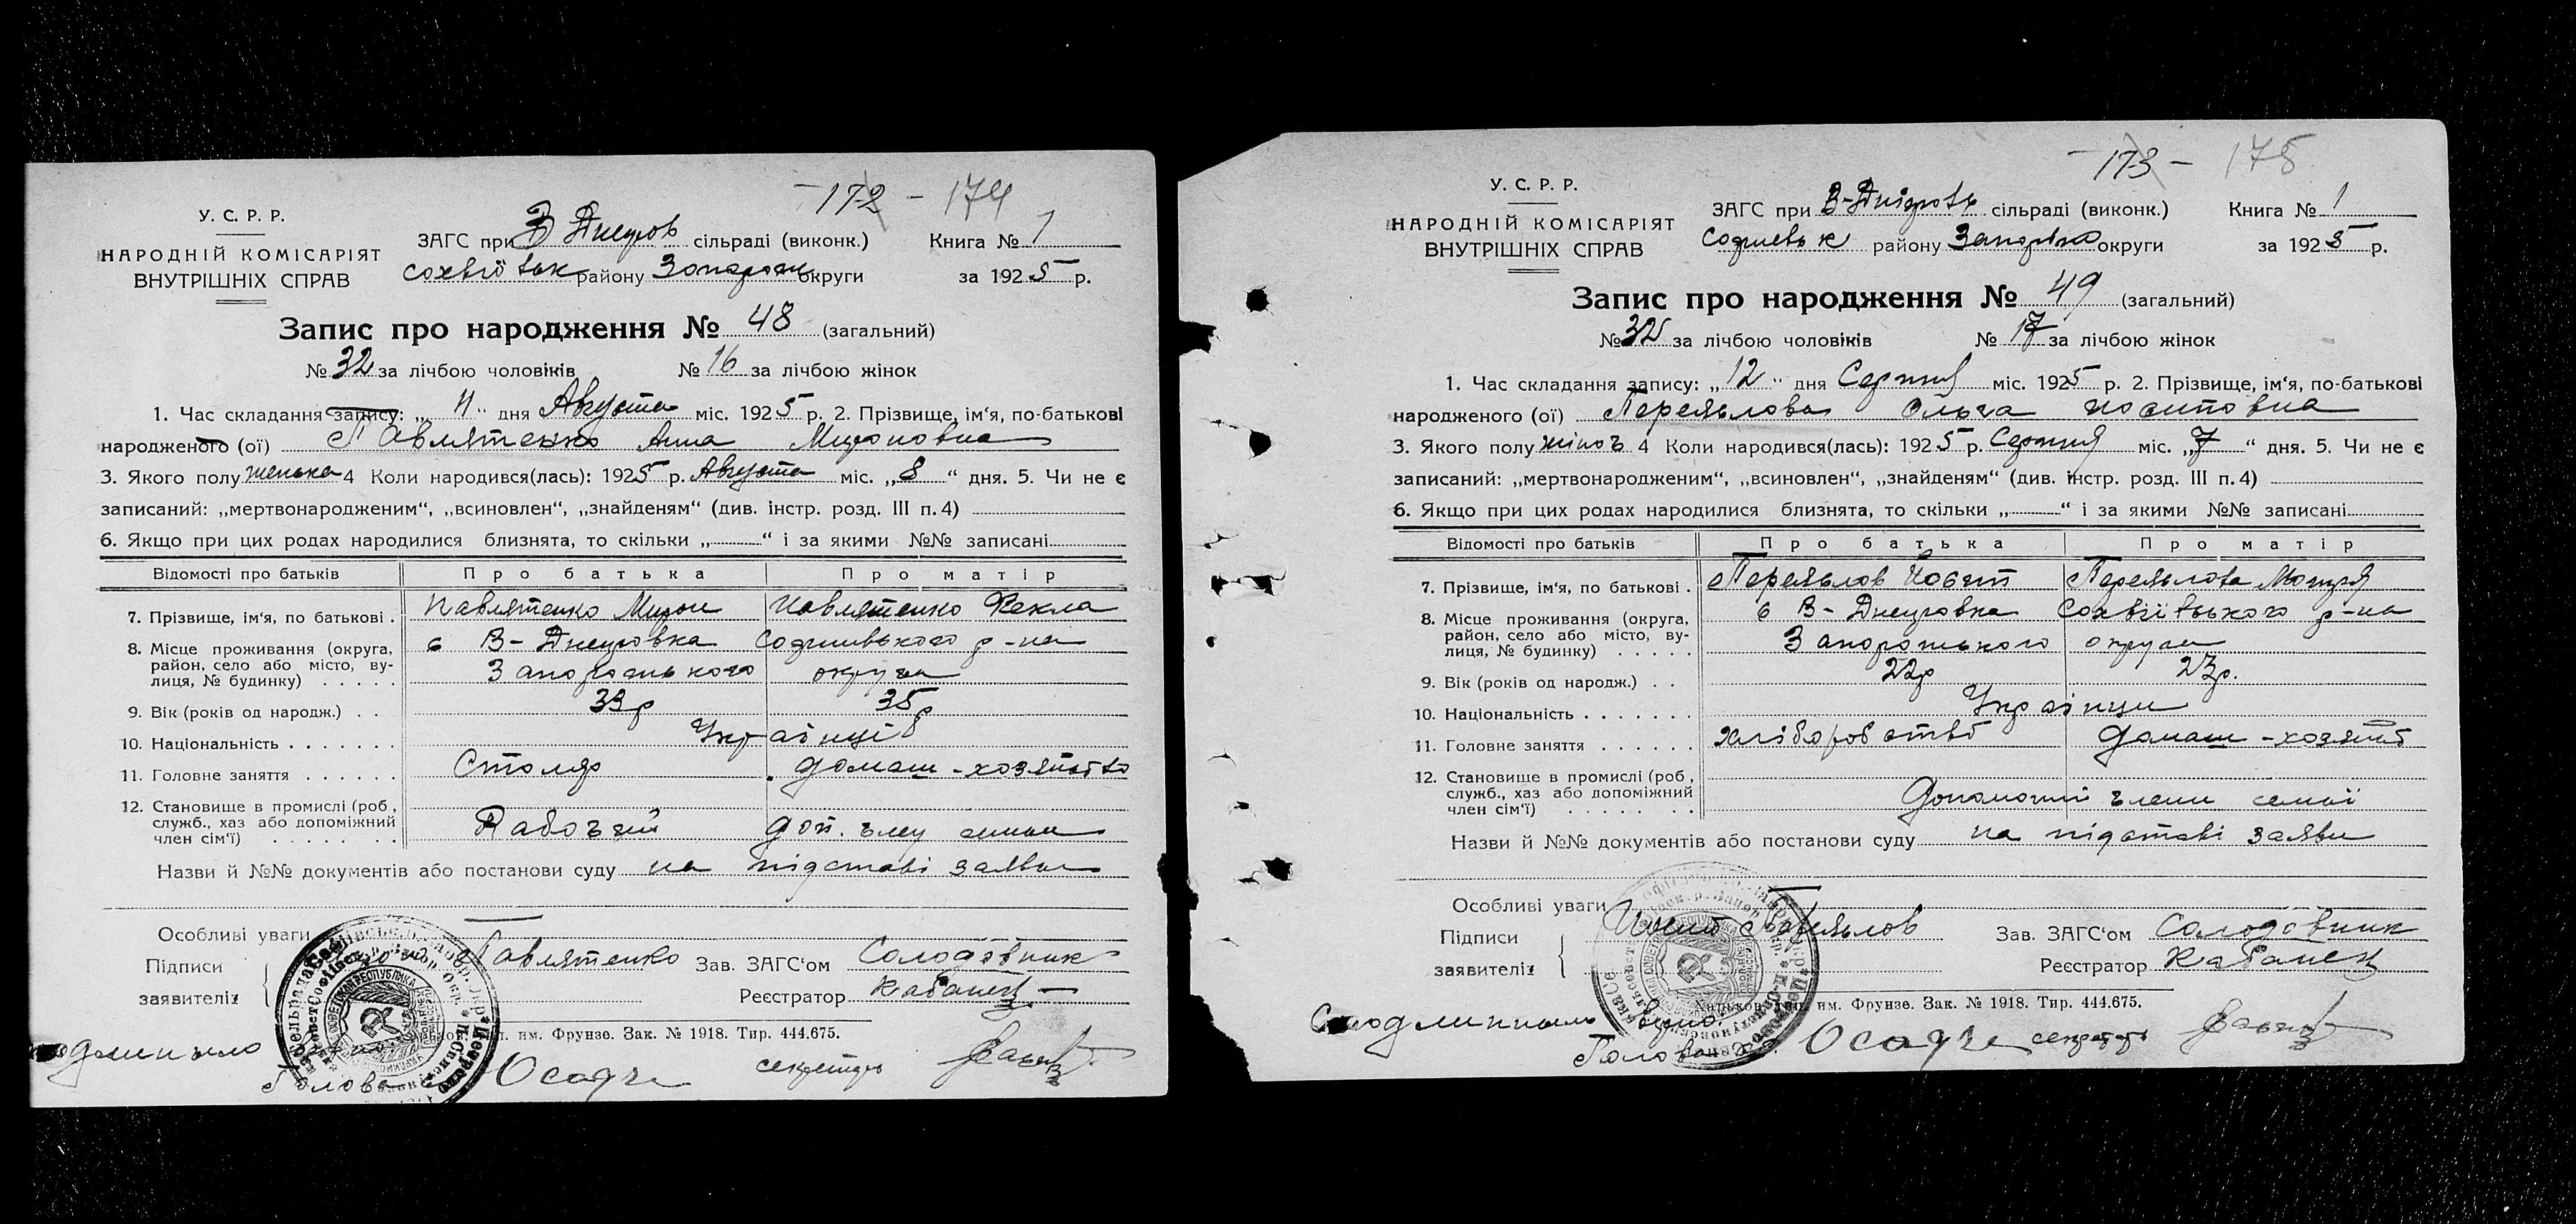 - 172 - 174
У. С. Р. Р.
НАРОДНІЙ КОМІСАРІЯТ
ВНУТРІШНІХ СПРАВ
ЗАГС при В Днепров сільраді (виконк.) Книга № 1
району округи за 1925 р.
Запис про народження № 48 (загальний)
№ 32 за лічбою чоловіків № 16 за лічбою жінок
1. Час складання запису: „ 11 “ дня Августа міс. 1925 р. 2. Прізвище, ім‘я, по-батькові
народженого (ої) Павлятенко Анна Мироновна
3. Якого полу женька 4 Коли народився(лась): 1925 р. Августа міс. „ 8 “ дня. 5. Чи не є
записаний: „мертвонародженим“, „всиновлен“, „знайденям“ (див. інстр. розд. III п. 4)
6. Якщо при цих родах народилися близнята, то скільки „ “ і за якими №№ записані
Відомості про батьків Про батька Про матір
7. Прізвище, ім‘я, по батькові . Павлятенко Мирон Павлятенко Фекла
8. Місце проживання (округа, район, село або місто, вулиця, № будинку) с В-Днепровка р-на
Запорожького округи
9. Вік (років од народж.) . . 33р 35р
10. Національність . . . . . . . Українці
11. Головне заняття . . . . . . Столяр домаш-хозяйство
12. Становище в промислі (роб., служб., хаз або допоміжний член сім‘ї) Рабочий доп. член
Назви й №№ документів або постанови суду на підставі заяви
Особливі уваги
Підписи заявителів Павлятенко Зав. ЗАГС‘ом Солодовник
Реєстратор Кабанец
им. Фрунзе. Зак. № 1918. Тир. 444.675.
Голова Осадчи секретарь
- 173 - 175
У. С. Р. Р.
НАРОДНІЙ КОМІСАРІЯТ
ВНУТРІШНІХ СПРАВ
ЗАГС при В-Дніпровк сільраді (виконк.) Книга № 1
району округи за 1925 р.
Запис про народження № 49 (загальний)
№ 32 за лічбою чоловіків № 17 за лічбою жінок
1. Час складання запису: „ 12 “ дня Серпня міс. 1925 р. 2. Прізвище, ім‘я, по-батькові
народженого (ої) Ольга Иосиповна
3. Якого полу жіноч 4 Коли народився(лась): 1925 р. Серпня міс. „ 7 “ дня. 5. Чи не є
записаний: „мертвонародженим“, „всиновлен“, „знайденям“ (див. інстр. розд. III п. 4)
6. Якщо при цих родах народилися близнята, то скільки „ “ і за якими №№ записані
Відомості про батьків Про батька Про матір
7. Прізвище, ім‘я, по батькові .
8. Місце проживання (округа, район, село або місто, вулиця, № будинку) с В-Днепровка р-на
Запорожького округи
9. Вік (років од народж.) . . 22р 23р.
10. Національність . . . . . . . Українци
11. Головне заняття . . . . . . хліборобство домаш-хозяйст
12. Становище в промислі (роб., служб., хаз або допоміжний член сім‘ї) члени семьї
Назви й №№ документів або постанови суду на підставі заяви
Особливі уваги
Підписи заявителів Зав. ЗАГС‘ом Солодовник
Реєстратор Кабанец
им. Фрунзе. Зак. № 1918. Тир. 444.675.
Голова Осадчи секретарь